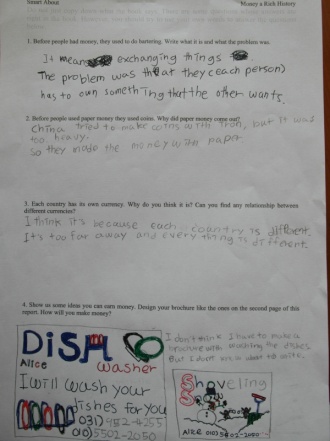 Smart About
Money a Rich History
1. Before people had money, they used to do bartering. Write what it is and what the problem was.
It means exchanging things
The problem was that they (each person)
has to own something that the other wants.
2. Before people used paper money they used coins. Why did paper money come out?
China tried to make coins with iron, but it was
too heavy.
So they made the money with paper.
3. Each country has its own currency. Why do you think it is? Can you find any relationship between
different currencies?
I think it's because each country is different.
It's too far away and everything is different.
4. Show us some ideas you can earn money. Design your brochure like the ones on the second page of this
report. How will you make money?
DiSH
Alice washer
I will wash your
dishes for you
031) 452-4255
010) 5502-2050
I don't think I have to make a
brochure with washing the dishes.
But I want to write.
Shoveling
Alice 010) 5502-2050